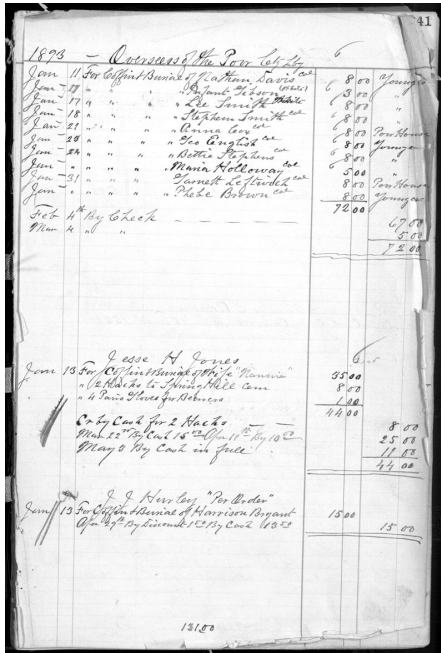 41
1893 — Overseers of the Poor City Lbg 6
Jan 11 For Coffin & Burial of Nathan Davis col 8 00 Youngers
Jan " " " " Infant Gibson (White) 6 3 00 "
Jan 17 " " " " Lee Smith White 6 8 00 "
Jan 18 " " " " Stephen Smith col 6 8 00 "
Jan 21 " " " " Anna Cox col 6 8 00 Poor House
Jan 20 " " " " Geo English col 6 8 00 Youngers
Jan 24 " " " " Bettie Stephens col 6 8 00 "
Jan " " " " " Maria Holloway col 5 00 "
Jan 31 " " " " Garnett Leftwich col 8 00 Poor House
Jan " " " " " Phebe Brown col 8 00 Youngers
72 00
Feb 4th By Check — — — — — 67 00
Mar 4 " " 5 00
72 00
Jesse H Jones 6
Jan 13 For Coffin & Burial of Wife "Nannie" 35 00
" " 2 Hacks to Spring Hill cem 8 00
" " 4 Pairs Gloves for Bearers 1 00
44 00
Cr by Cash for 2 Hacks — 8 00
Mar 22nd By Cash 15 00 Apr 11th By 10 00 25 00
May 5 By Cash in full 11 00
44 00
J. J. Hurley "Per Order"
Jan 13 For Coffin & Burial of Harrison Bryant 15 00
Apr 29th By Discount 1 50 By Cash 13 50 15 00
131.00